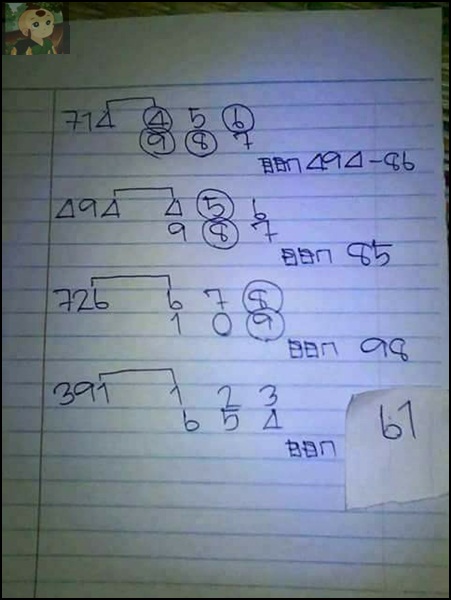 714 4 5 6
9 8 7
ออก 494-86
494 4 5 6
9 8 7
ออก 85
726 6 7 8
1 0 9
ออก 98
391 1 2 3
6 5 4
ออก 61